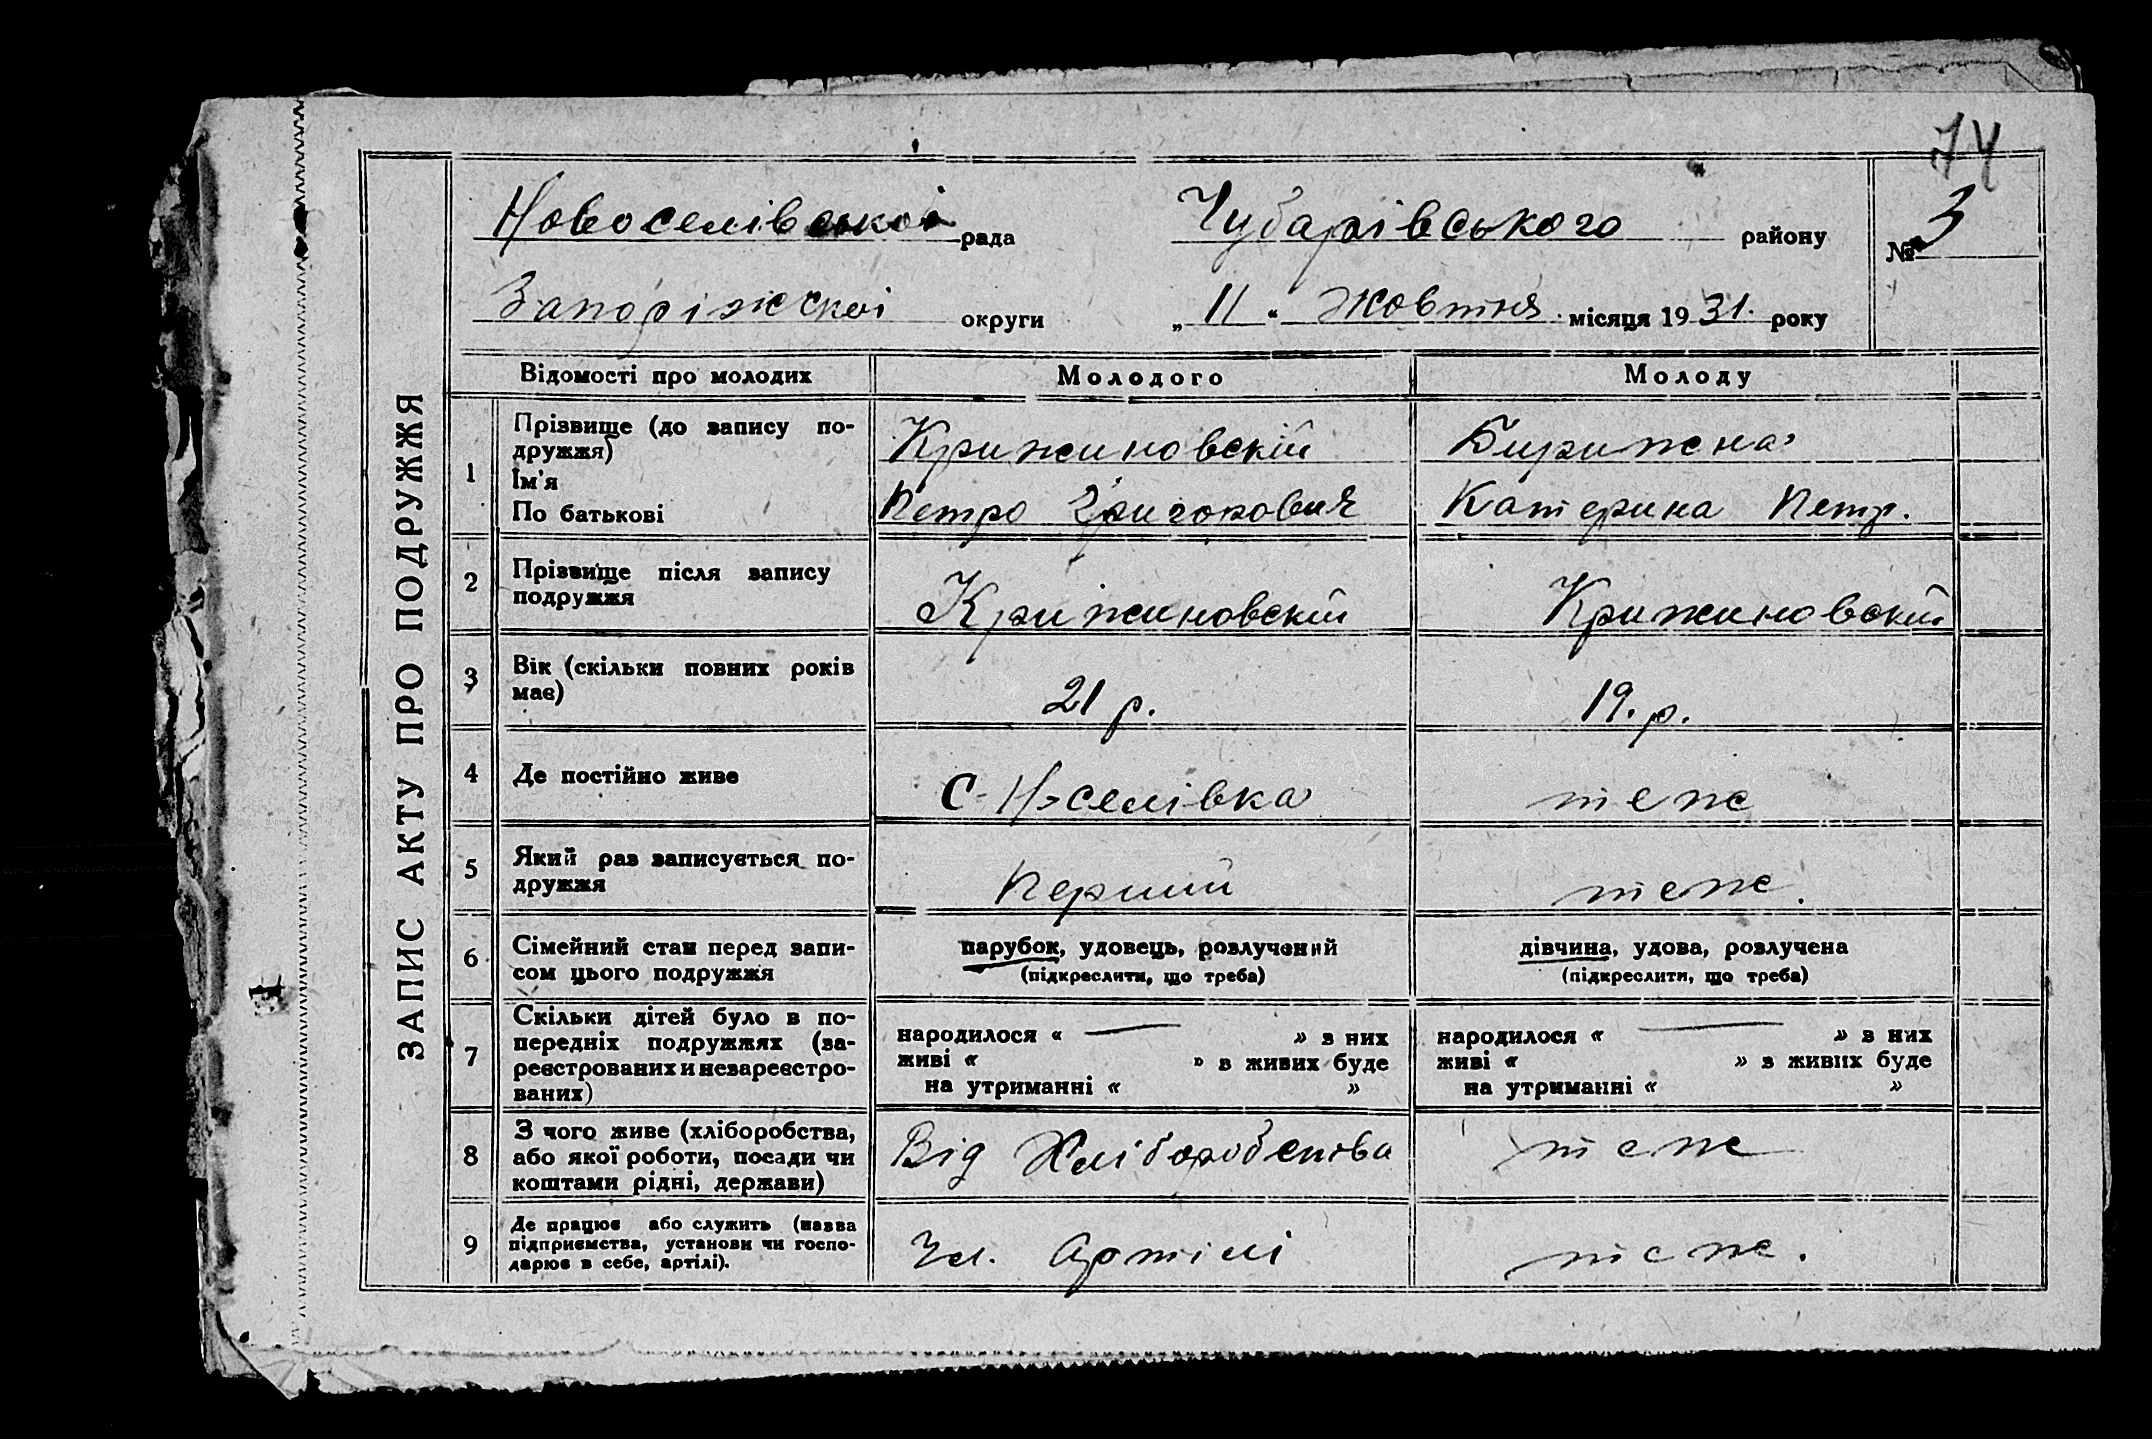 74
Новоселівської рада Чубарівського району № 3
Запоріжскої округи „ 11 “ Жовтня місяця 19 31. року
ЗАПИС АКТУ ПРО ПОДРУЖЖЯ
Відомості про молодих Молодого Молоду
1 Прізвище (до запису по-
дружжя)
Ім'я
По батькові
Крижиновскій
Петро Григорович
Бирижна
Катерина Петр.
2 Прізвище після запису
подружжя
Крижиновскій Крижиновскій
3 Вік (скільки повних років
має)
21 р. 19. р.
4 Де постійно живе С-Н-селівка теж
5 Який раз записується по-
дружжя
Перший теж.
6 Сімейний стан перед запи-
сом цього подружжя
парубок, удовець, розлучений
(підкреслити, що треба)
дівчина, удова, розлучена
(підкреслити, що треба)
7 Скільки дітей було в по-
передніх подружжях (за-
реєстрованих и незареєстро-
ваних)
народилося « — » з них
живі « » в живих буде
на утриманні « »
народилося « — » в них
живі « » з живих буде
на утриманні « »
8 З чого живе (хліборобства,
або якої роботи, посади чи
коштами рідні, держави)
Від Хліборобства теж
9 Де працює або служить (назва
підприємства, установи чи госпо-
дарює в себе, артілі).
Чл. Артілі теж.